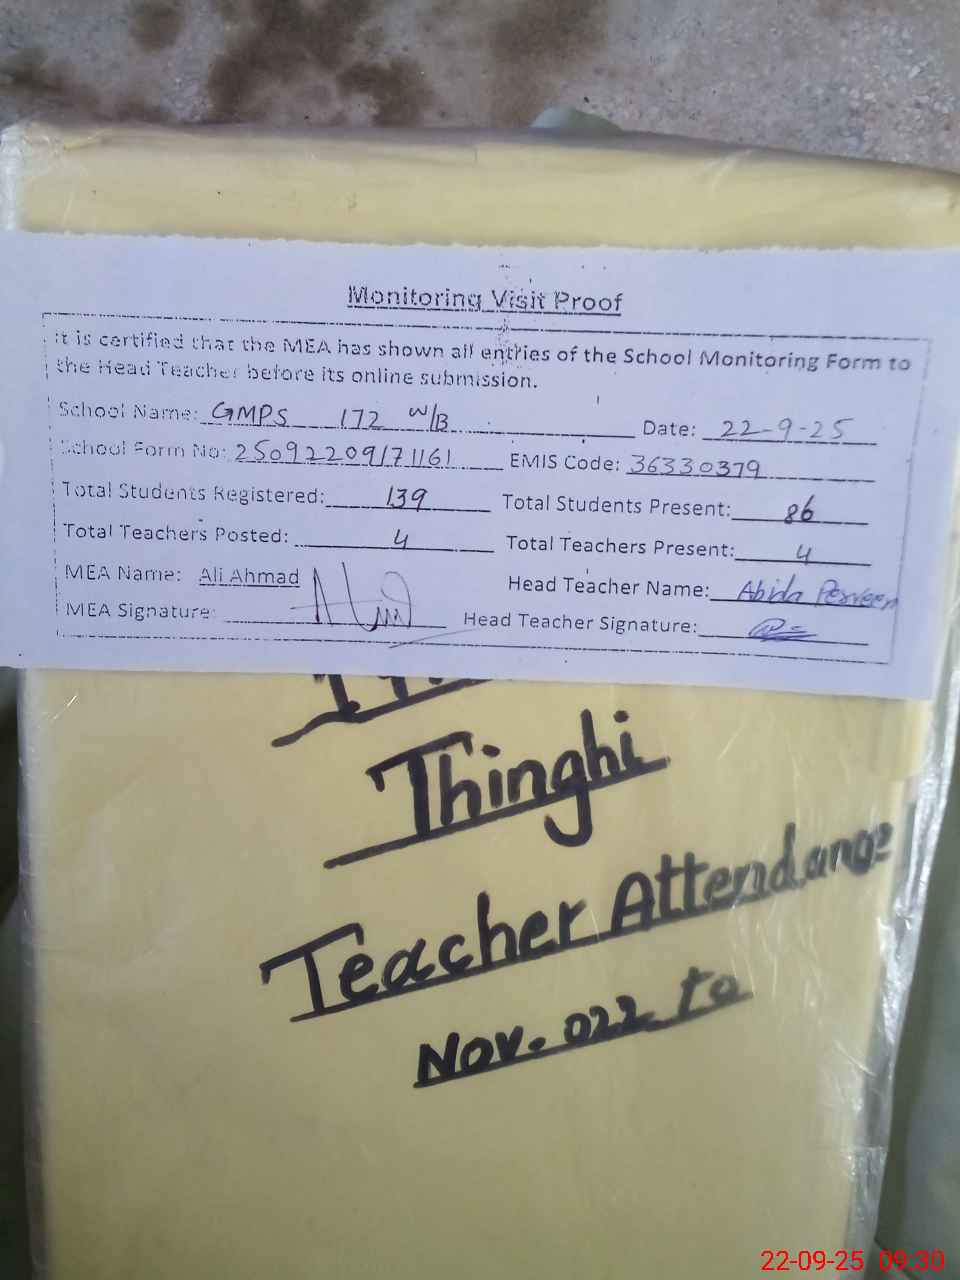 Monitoring Visit Proof
It is certified that the MEA has shown all entries of the School Monitoring Form to
the Head Teacher before its online submission.
School Name: GMPS 172 W/B Date: 22-9-25
School Form No: 25092209171161 EMIS Code: 36330379
Total Students Registered: 139 Total Students Present: 86
Total Teachers Posted: 4 Total Teachers Present: 4
MEA Name: Ali Ahmad Head Teacher Name: Abida Perveen
MEA Signature: Head Teacher Signature:
Thinghi
Teacher Attendance
Nov. 022 to
22-09-25 09:30